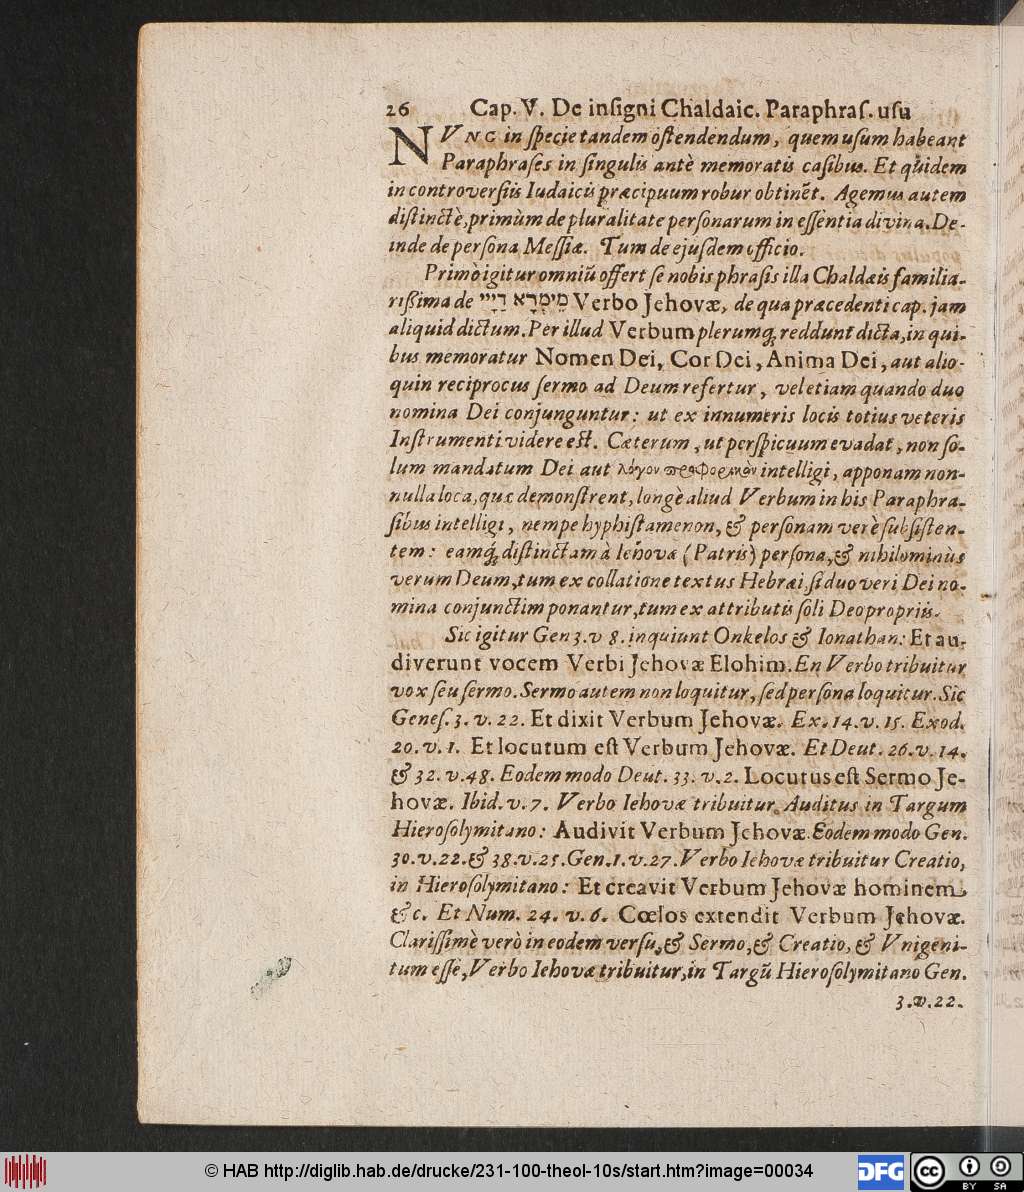 26 Cap. V. De inſigni Chaldaic. Paraphraſ. uſu
NVNC in ſpecie tandem oſtendendum, quem uſum habeant
Paraphraſes in ſingulis antè memoratis caſibus. Et quidem
in controverſiis Iudaicis præcipuum robur obtinẽt. Agemus autem
diſtinctè, primùm de pluralitate perſonarum in eſſentia divina. De-
inde de perſona Meſſiæ. Tum de ejuſdem officio.
Primò igitur omniũ offert ſe nobis phraſis illa Chaldæis familia-
rißima de מֵימְרָא דַיְיָ Verbo Jehovæ, de qua præcedenti cap. jam
aliquid dictum. Per illud Verbum plerumq́; reddunt dicta, in qui-
bus memoratur Nomen Dei, Cor Dei, Anima Dei, aut alio-
quin reciprocus ſermo ad Deum refertur, vel etiam quando duo
nomina Dei conjunguntur: ut ex innumeris locis totius veteris
Inſtrumenti videre eſt. Cæterum, ut perſpicuum evadat, non ſo-
lum mandatum Dei aut λόγον προφορικὸν intelligi, apponam non-
nulla loca, quæ demonſtrent, longè aliud Verbum in his Paraphra-
ſibus intelligi, nempe hyphiſtamenon, & perſonam verè ſubſiſten-
tem: eamq́; diſtinctam à Iehova (Patris) perſona, & nihilominùs
verum Deum, tum ex collatione textus Hebræi, ſi duo veri Dei no-
mina conjunctim ponantur, tum ex attributis ſoli Deo propriis.
Sic igitur Gen 3. v 8. inquiunt Onkelos & Ionathan: Et au-
diverunt vocem Verbi Jehovæ Elohim. En Verbo tribuitur
vox ſeu ſermo. Sermo autem non loquitur, ſed perſona loquitur. Sic
Geneſ. 3. v. 22. Et dixit Verbum Jehovæ. Ex. 14. v. 15. Exod.
20. v. 1. Et locutum eſt Verbum Jehovæ. Et Deut. 26. v. 14.
& 32. v. 48. Eodem modo Deut. 33. v. 2. Locutus eſt Sermo Je-
hovæ. Ibid. v. 7. Verbo Iehovæ tribuitur Auditus in Targum
Hieroſolymitano: Audivit Verbum Jehovæ. Eodem modo Gen.
30. v. 22. & 38. v. 25. Gen. 1. v. 27. Verbo Iehovæ tribuitur Creatio,
in Hieroſolymitano: Et creavit Verbum Jehovæ hominem,
&c. Et Num. 24. v. 6. Cœlos extendit Verbum Jehovæ.
Clariſſimè verò in eodem verſu, & Sermo, & Creatio, & Vnigeni-
tum eſſe, Verbo Iehovæ tribuitur, in Targũ Hieroſolymitano Gen.
3. v. 22.
© HAB http://diglib.hab.de/drucke/231-100-theol-10s/start.htm?image=00034
DFG
cc
BY SA